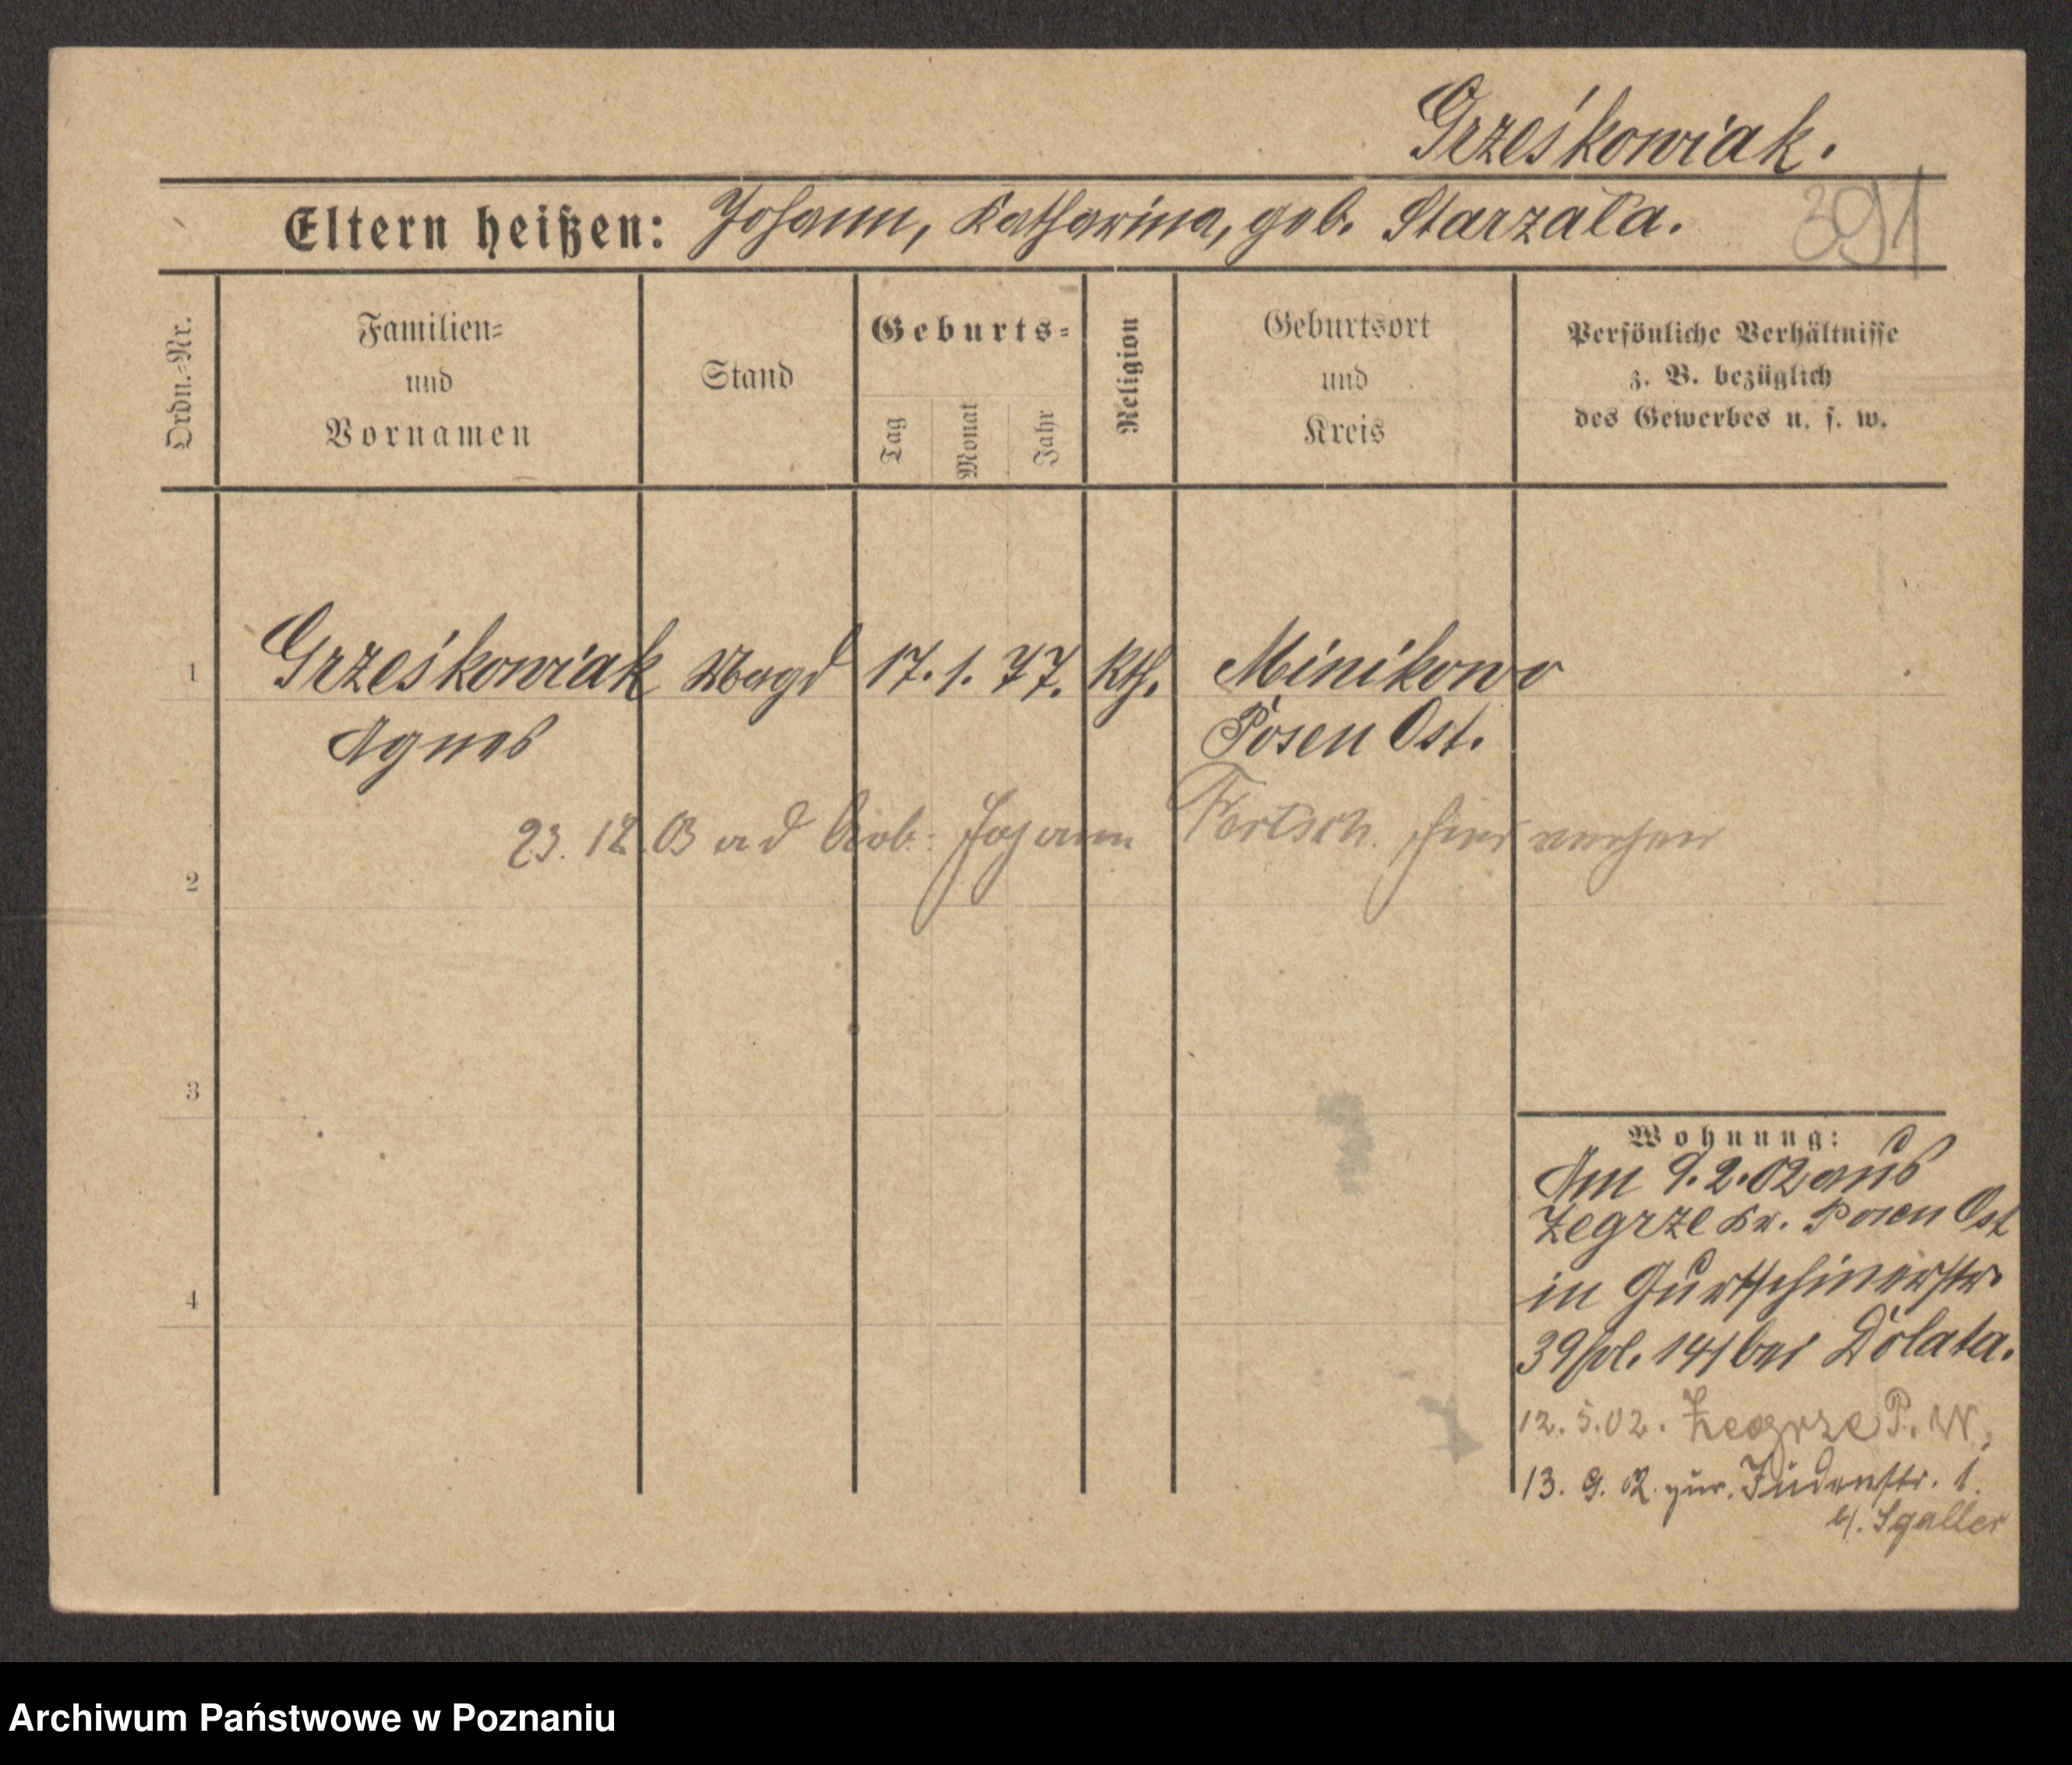 Grześkowiak.
Eltern heißen: Johann, Katharina, geb. Starzała.
391
Ordn.=Nr.
Familien=
und
Vornamen
Stand
Geburts=
Tag
Monat
Jahr
Religion
Geburtsort
und
Kreis
Persönliche Verhältnisse
z. B. bezüglich
des Gewerbes u. s. w.
1 Grześkowiak Magd 17. 1. 77. kth. Minikowo
Agnes Posen Ost.
23. 12. 03 ad Arb. Johann
2
3
4
Wohnung:
Am 9. 2. 02 aus
Zegrze Kr. Posen Ost
in Gurtschinerstr.
39 pol. 141 bei Dolata.
12. 5. 02. Zegrze P. W.
13. 9. 02 zur. Judenstr. 1.
b/. Sgaller
Archiwum Państwowe w Poznaniu